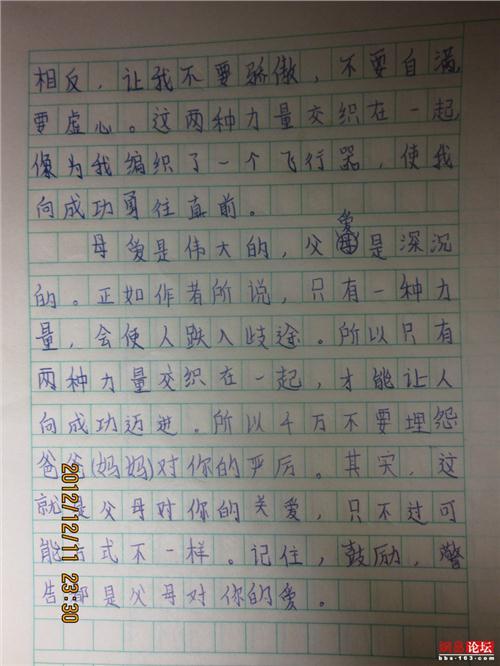 相反，让我不要骄傲，不要自满
要虚心。这两种力量交织在一起
像为我编织了一个飞行器，使我
向成功勇往直前。
母爱是伟大的，父爱是深沉
的。正如作者所说，只有一种力
量，会使人跌入歧途。所以只有
两种力量交织在一起，才能让人
向成功迈进。所以千万不要埋怨
爸爸(妈妈)对你的严厉。其实，这
就是父母对你的关爱，只不过可
能方式不一样。记住，鼓励，警
告都是父母对你的爱。
2012/12/11 23:30
网易论坛
bbs·163.com